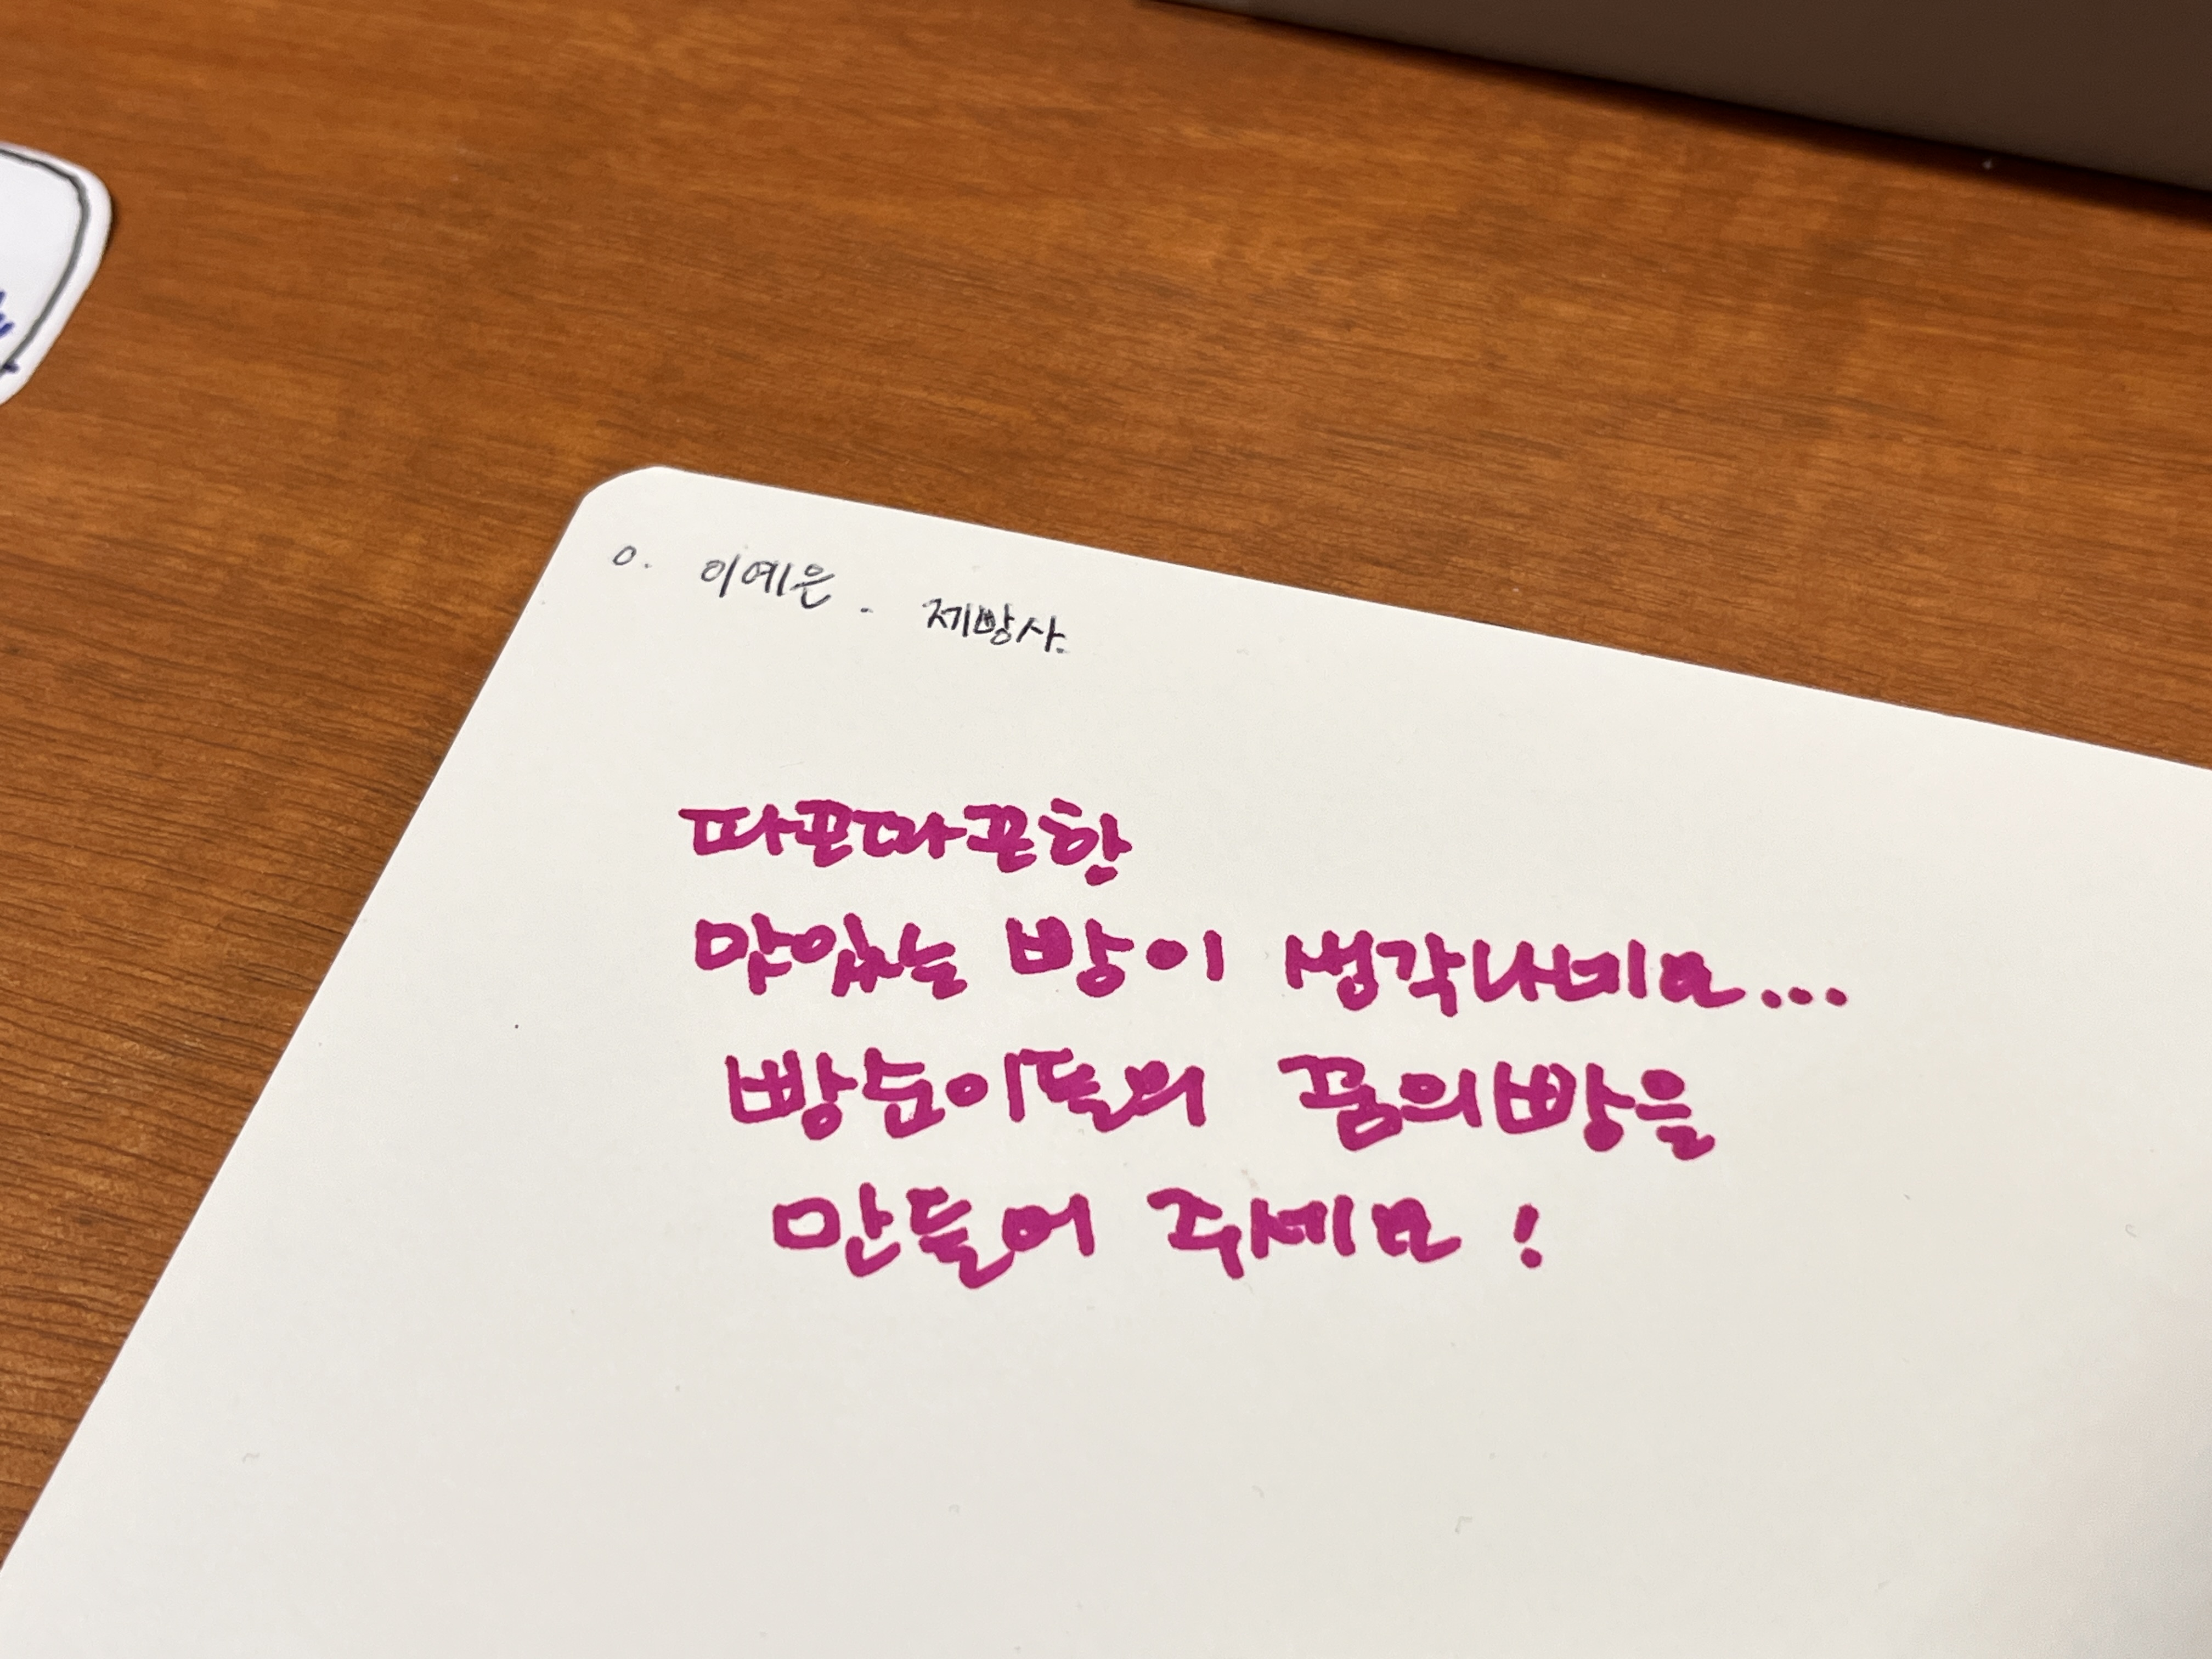 0. 이예은 - 제빵사.
따끈따끈한
맛있는 빵이 생각나네요...
빵순이들의 꿈의빵을
만들어 주세요!